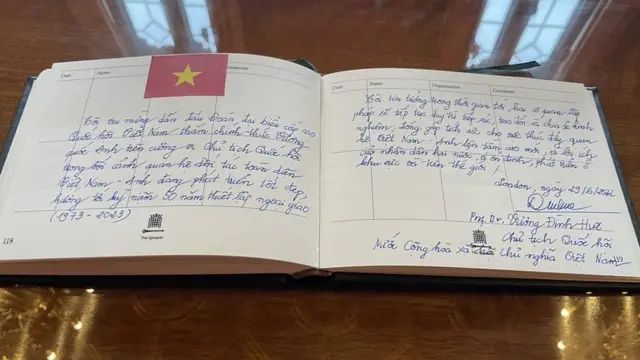 Date Name Comments
Tôi vui mừng dẫn đầu Đoàn đại biểu cấp cao
Quốc hội Việt Nam thăm chính thức Vương
quốc Anh trên cương vị Chủ tịch Quốc hội
trong bối cảnh quan hệ đối tác toàn diện
Việt Nam - Anh đang phát triển tốt đẹp,
hướng tới kỷ niệm 50 năm thiết lập ngoại giao
(1973-2023)
118
The Speaker
Date Name Organisation Comments
Tôi tin tưởng trong thời gian tới, hai cơ quan lập
pháp sẽ tiếp tục duy trì tiếp xúc, trao đổi và chia sẻ kinh
nghiệm, đóng góp tích cực cho việc thúc đẩy quan
hệ Việt Nam - Anh lên tầm cao mới, vì lợi ích
của nhân dân hai nước, vì ổn định, phát triển ở
khu vực và trên thế giới!
London, ngày 29/6/2022
Prof. Dr. Vương Đình Huệ
Chủ tịch Quốc hội
Nước Cộng hoà xã Chủ nghĩa Việt Nam
119